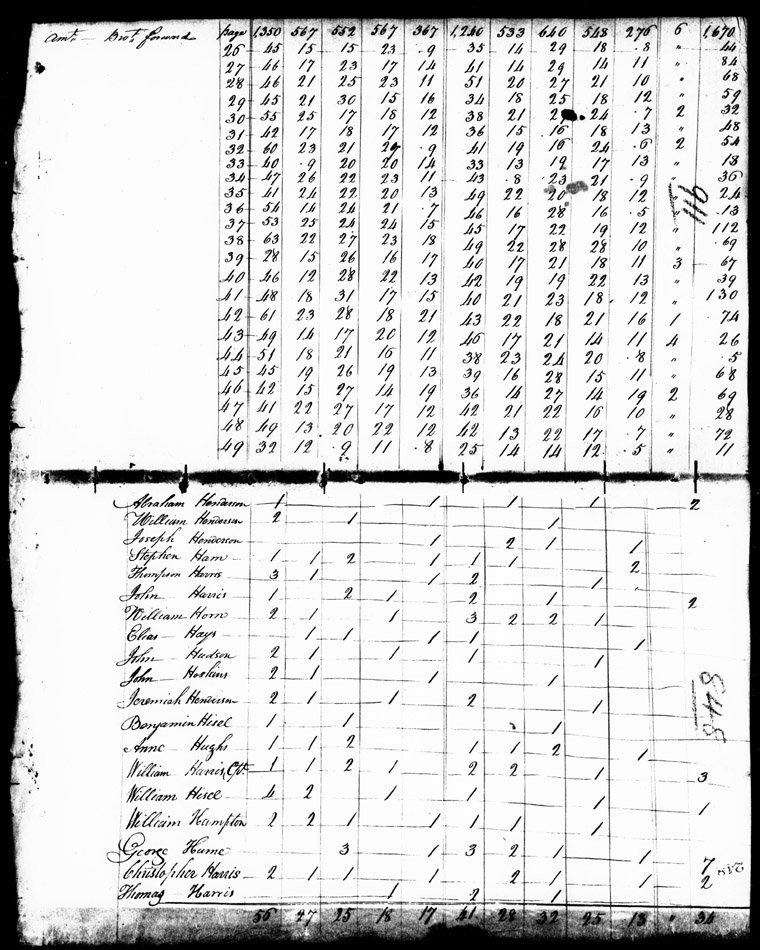 Amt. Brot. forward page 1350 567 552 567 367 1,240 533 640 548 276 6 1,670
26 45 15 15 23 9 35 14 29 18 8 " 44
27 46 17 23 17 14 41 14 29 14 11 " 84
28 46 21 25 23 11 51 20 27 21 10 " 68
29 45 21 30 15 16 34 18 25 18 12 " 59
30 55 25 17 18 12 38 21 24 7 2 32
31 42 17 18 17 12 36 15 16 18 13 " 48
32 60 23 21 9 41 19 16 24 6 2 54
33 40 9 20 20 14 33 13 19 17 13 " 18
34 47 26 22 23 11 43 8 23 21 9 " 36
35 41 24 22 20 13 49 22 20 18 12 " 24
36 54 14 24 21 7 46 16 28 16 5 " 13
37 53 25 24 24 15 45 17 22 19 12 " 112
38 63 22 27 23 18 49 22 28 28 10 " 69
39 28 15 26 16 17 40 17 21 18 11 3 67
40 46 12 28 22 13 42 19 19 22 13 " 39
41 48 18 31 17 15 40 21 23 18 12 " 130
42 61 23 28 18 21 43 22 18 21 16 1 74
43 49 14 17 20 12 46 17 21 14 11 4 26
44 51 18 21 16 11 38 23 24 20 8 " 5
45 45 19 26 19 13 39 16 28 15 11 " 68
46 42 15 27 14 19 36 14 27 14 19 2 69
47 41 22 27 17 12 42 21 22 16 10 " 28
48 49 13 20 22 12 42 13 22 17 7 " 72
49 32 12 9 11 8 25 14 14 12 5 " 11
911
Abraham Henderson 1 1 1 1 2
William Henderson 2 1 1
Joseph Henderson 1 2 1 1
Stephen Ham 1 1 2 1 1 1 2
Thompson Harris 3 1 1 2 1
John Harris 1 2 1 2 1 2
William Horn 2 1 1 3 2 2 1
Elias Hays 1 1 1 1 1
John Hudson 2 1 1 1 1
John Hoskins 2 1 1 1
Jeremiah Henderson 2 1 1 2 1
848
Benjamin Hisel 1 1 1
Anne Hughs 1 1 2 1 1 2 1
William Harris, Cpt. 1 1 2 1 2 2 1 3
William Hisel 4 2 1 1 1 1
William Hampton 2 2 1 1 1 1 1
George Hume 3 1 3 2 1 1 7
Christopher Harris 2 1 1 1 2 1 1 2
Thomas Harris 1 2 1
56 47 25 18 17 41 28 32 25 13 " 34